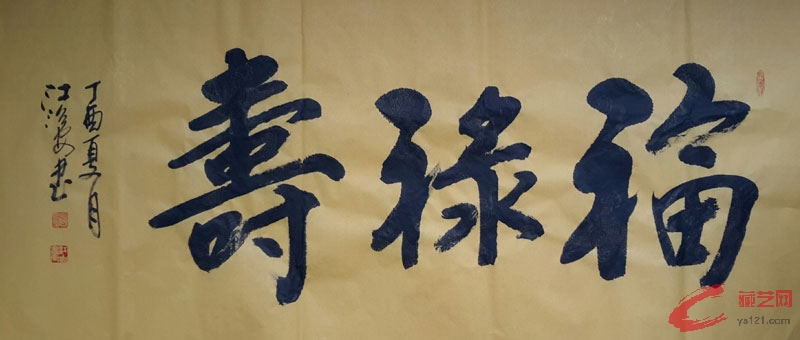 福禄壽
丁酉夏月
江
书
藏艺网
ys121.com